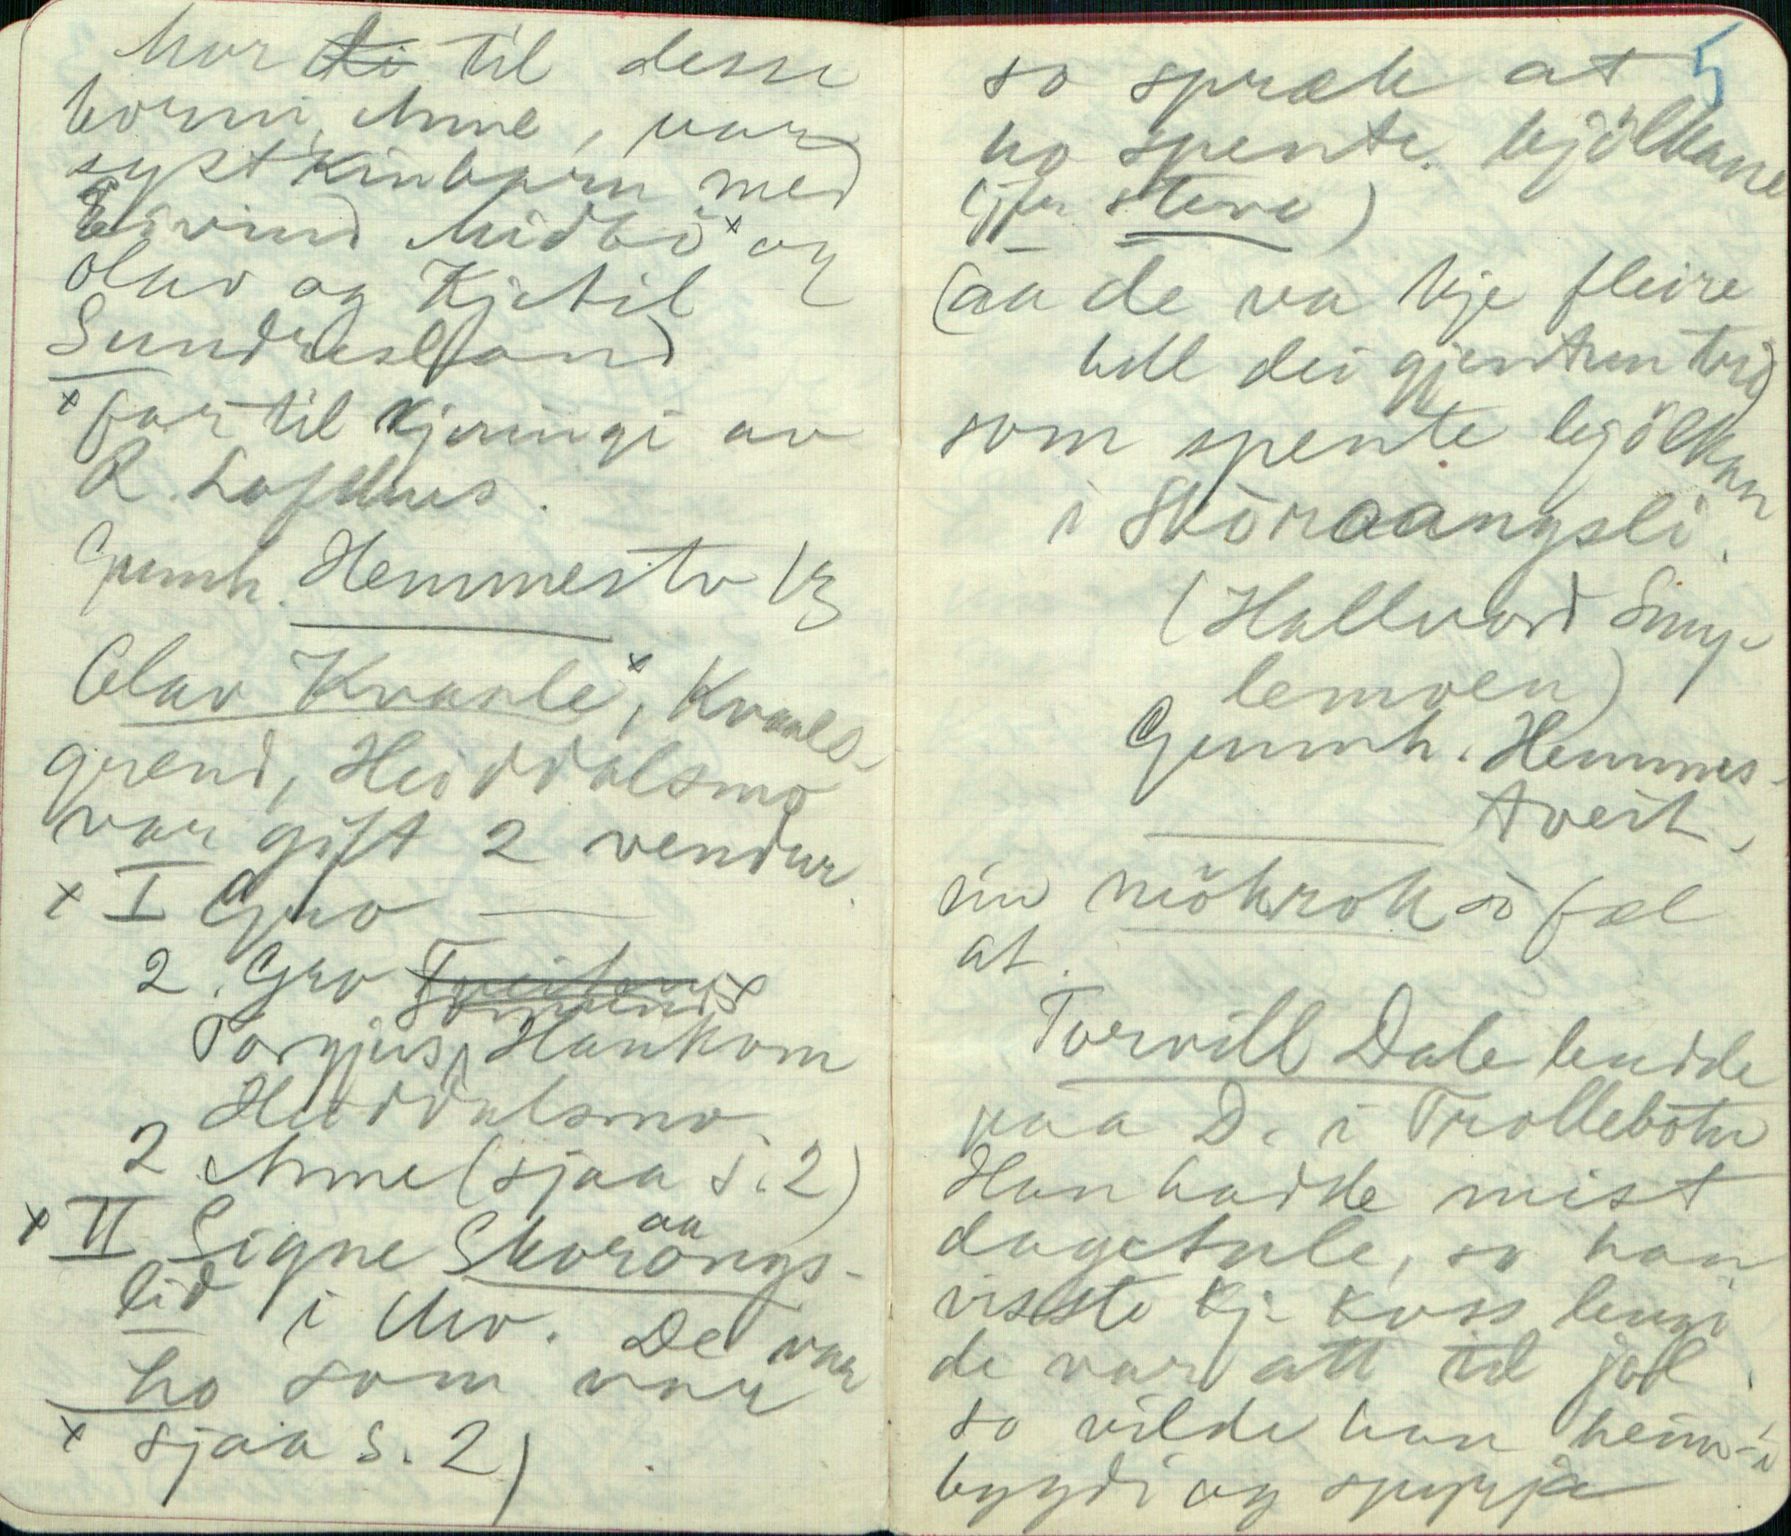 Mor til desse
borni, Anne, var
systkinbarn med
Eivind Midbö x og
Olav og Kjetil
Sundresland
x far til kjeringi av
R. Lofthus.
Gunnh. Hemmestv
Olav Kvaale x, Kvaals-
grend, Heiddalsmo
var gift 2 vendur.
x I Gro —
2. Gro
Torgjus Haukom
Heiddalsmo.
2 Anne (sjaa s. 2)
x II Signe Skoraangs-
lid i Mo. De var
ho som var
x sjaa s. 2)
5
so spræk at
ho spente bjölkane
(jfr steve)
(aa de va kje fleire
hell dei gjentun tvo
som spente bjölkan
i Sköraangsli.
(Hallvord Smye-
lemoen)
Gunnh. Hemmes-
tveit.
ein niökrok so fæl
at.
Torvill Dale budde
paa D. i Trollebotn
Han hadde mist
dagetale, so han
visste kje koss lengi
de var att til jol,
so vilde han heim i
bygdi og spyrja